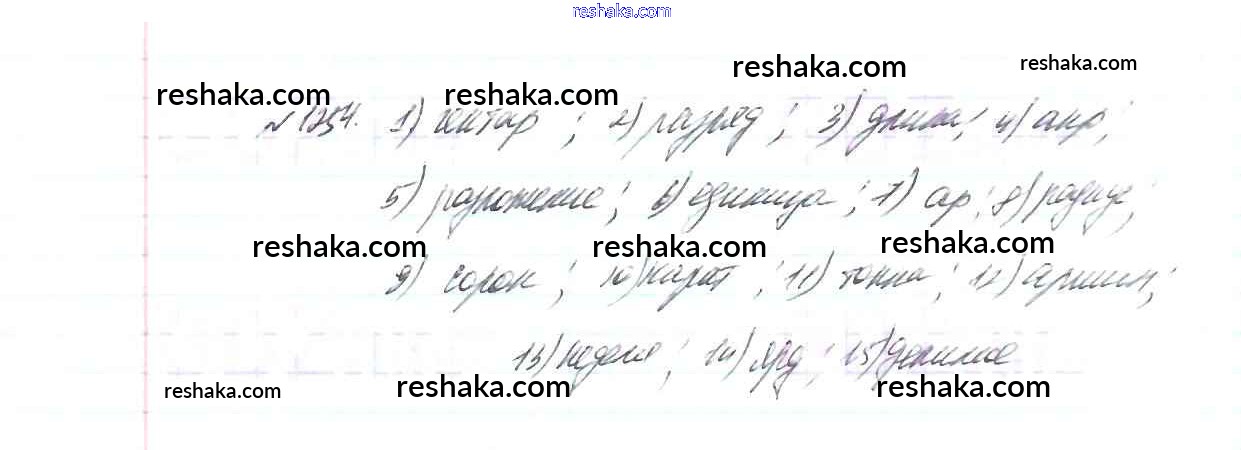 reshaka.com
reshaka.com reshaka.com
reshaka.com reshaka.com
№1254. 1) гектар; 2) разряд; 3) длина; 4) акр;
5) разложение; 6) единица; 7) ар; 8) радиус;
reshaka.com reshaka.com reshaka.com
9) сорок; 10) карат; 11) тонна; 12) аршин;
13) неделя; 14) ярд; 15) делимое
reshaka.com reshaka.com reshaka.com